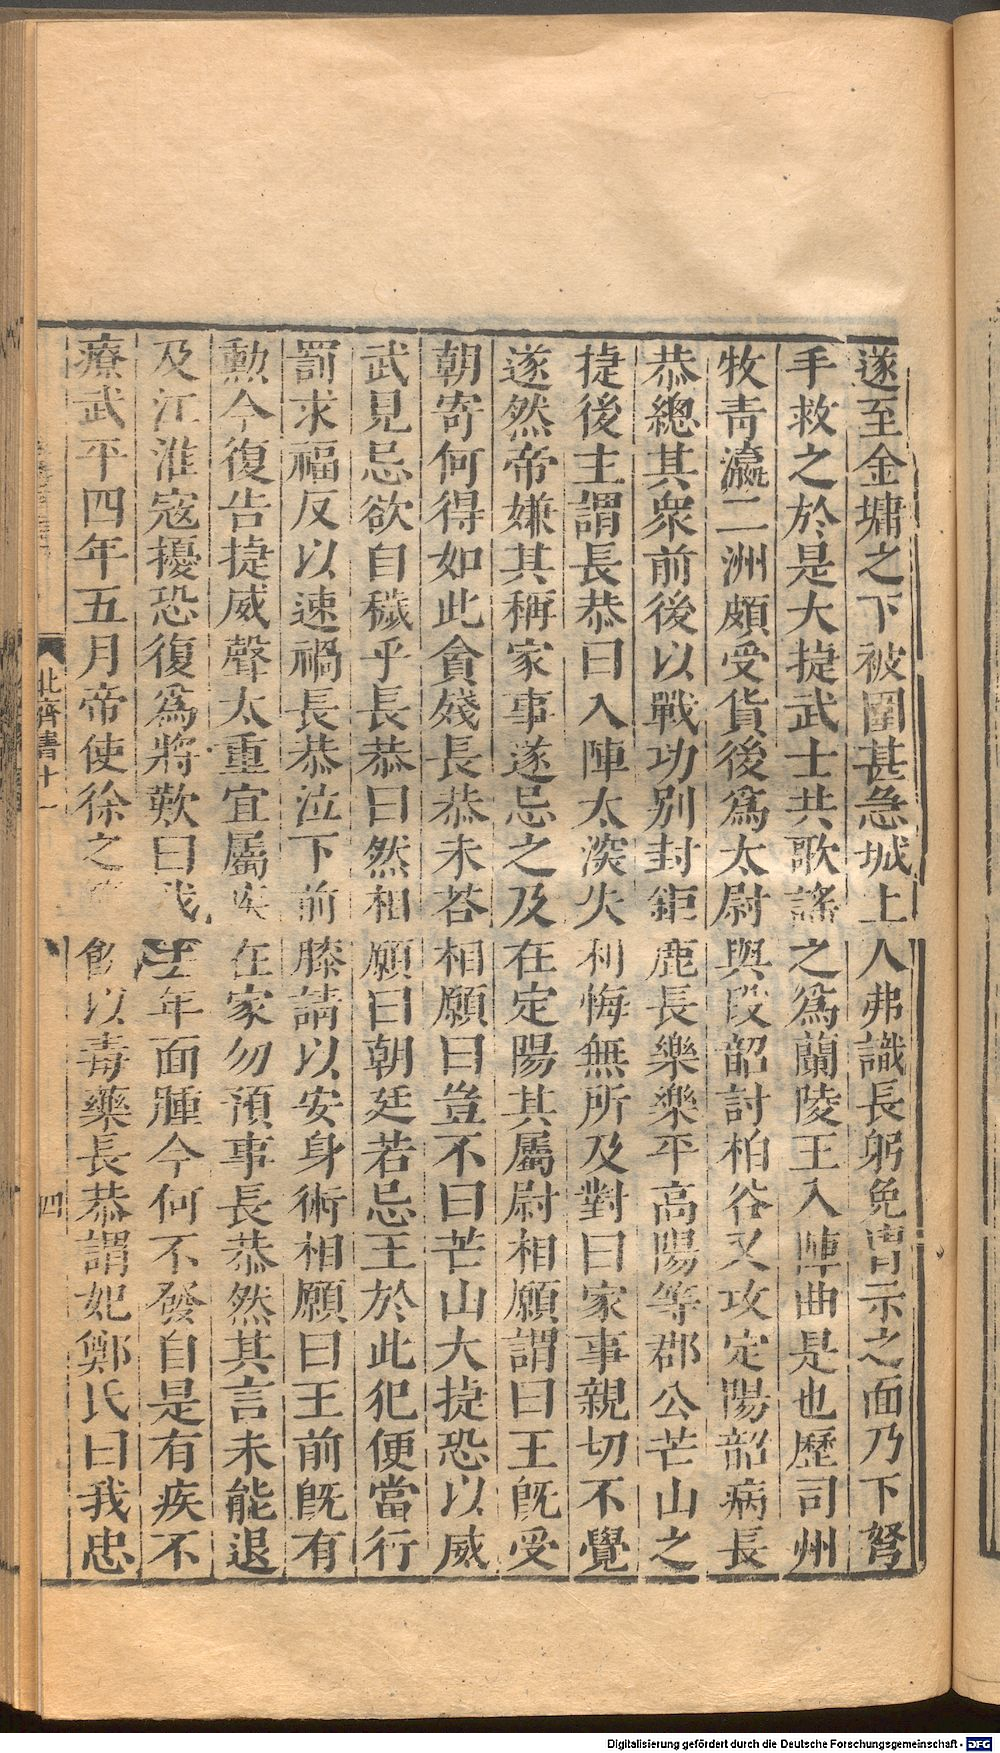 遂至金墉之下被圍甚急城上人弗識長躬免冑示之面乃下弩
手救之於是大捷武士共歌謠之爲蘭陵王入陣曲是也歷司州
牧青瀛二洲頗受貨後爲太尉與段韶討柏谷又攻定陽韶病長
恭總其衆前後以戰功別封鉅鹿長樂樂平高陽等郡公芒山之
捷後主謂長恭曰入陣太深失利悔無所及對曰家事親切不覺
遂然帝嫌其稱家事遂忌之及在定陽其屬尉相願謂曰王旣受
朝寄何得如此貪殘長恭未荅相願曰豈不曰芒山大捷恐以威
武見忌欲自穢乎長恭曰然相願曰朝廷若忌王於此犯便當行
罰求福反以速禍長恭泣下前膝請以安身術相願曰王前旣有
勳今復告捷威聲太重宜屬疾在家勿預事長恭然其言未能退
及江淮寇擾恐復爲將歎曰我去年面腫今何不發自是有疾不
療武平四年五月帝使徐之飮以毒藥長恭謂妃鄭氏曰我忠
北齊書十一 四
Digitalisierung gefördert durch die Deutsche Forschungsgemeinschaft - DFG